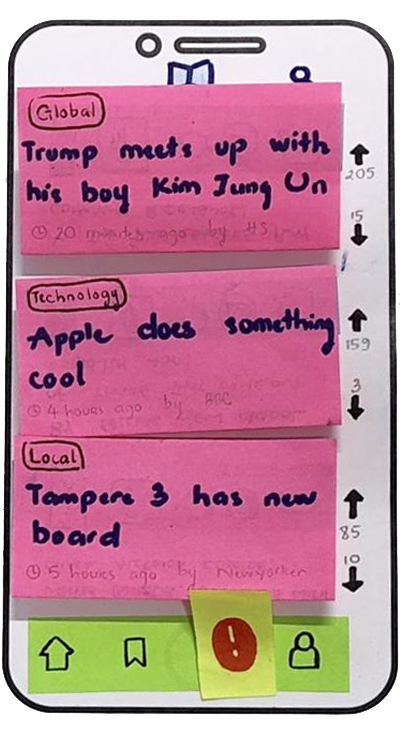 Global
Trump meets up with
his boy Kim Jung Un
20 minutes ago by HS
205
15
Technology
Apple does something
cool
4 hours ago by BBC
159
3
Local
Tampere 3 has new
board
5 hours ago by Newyorker
85
10
!